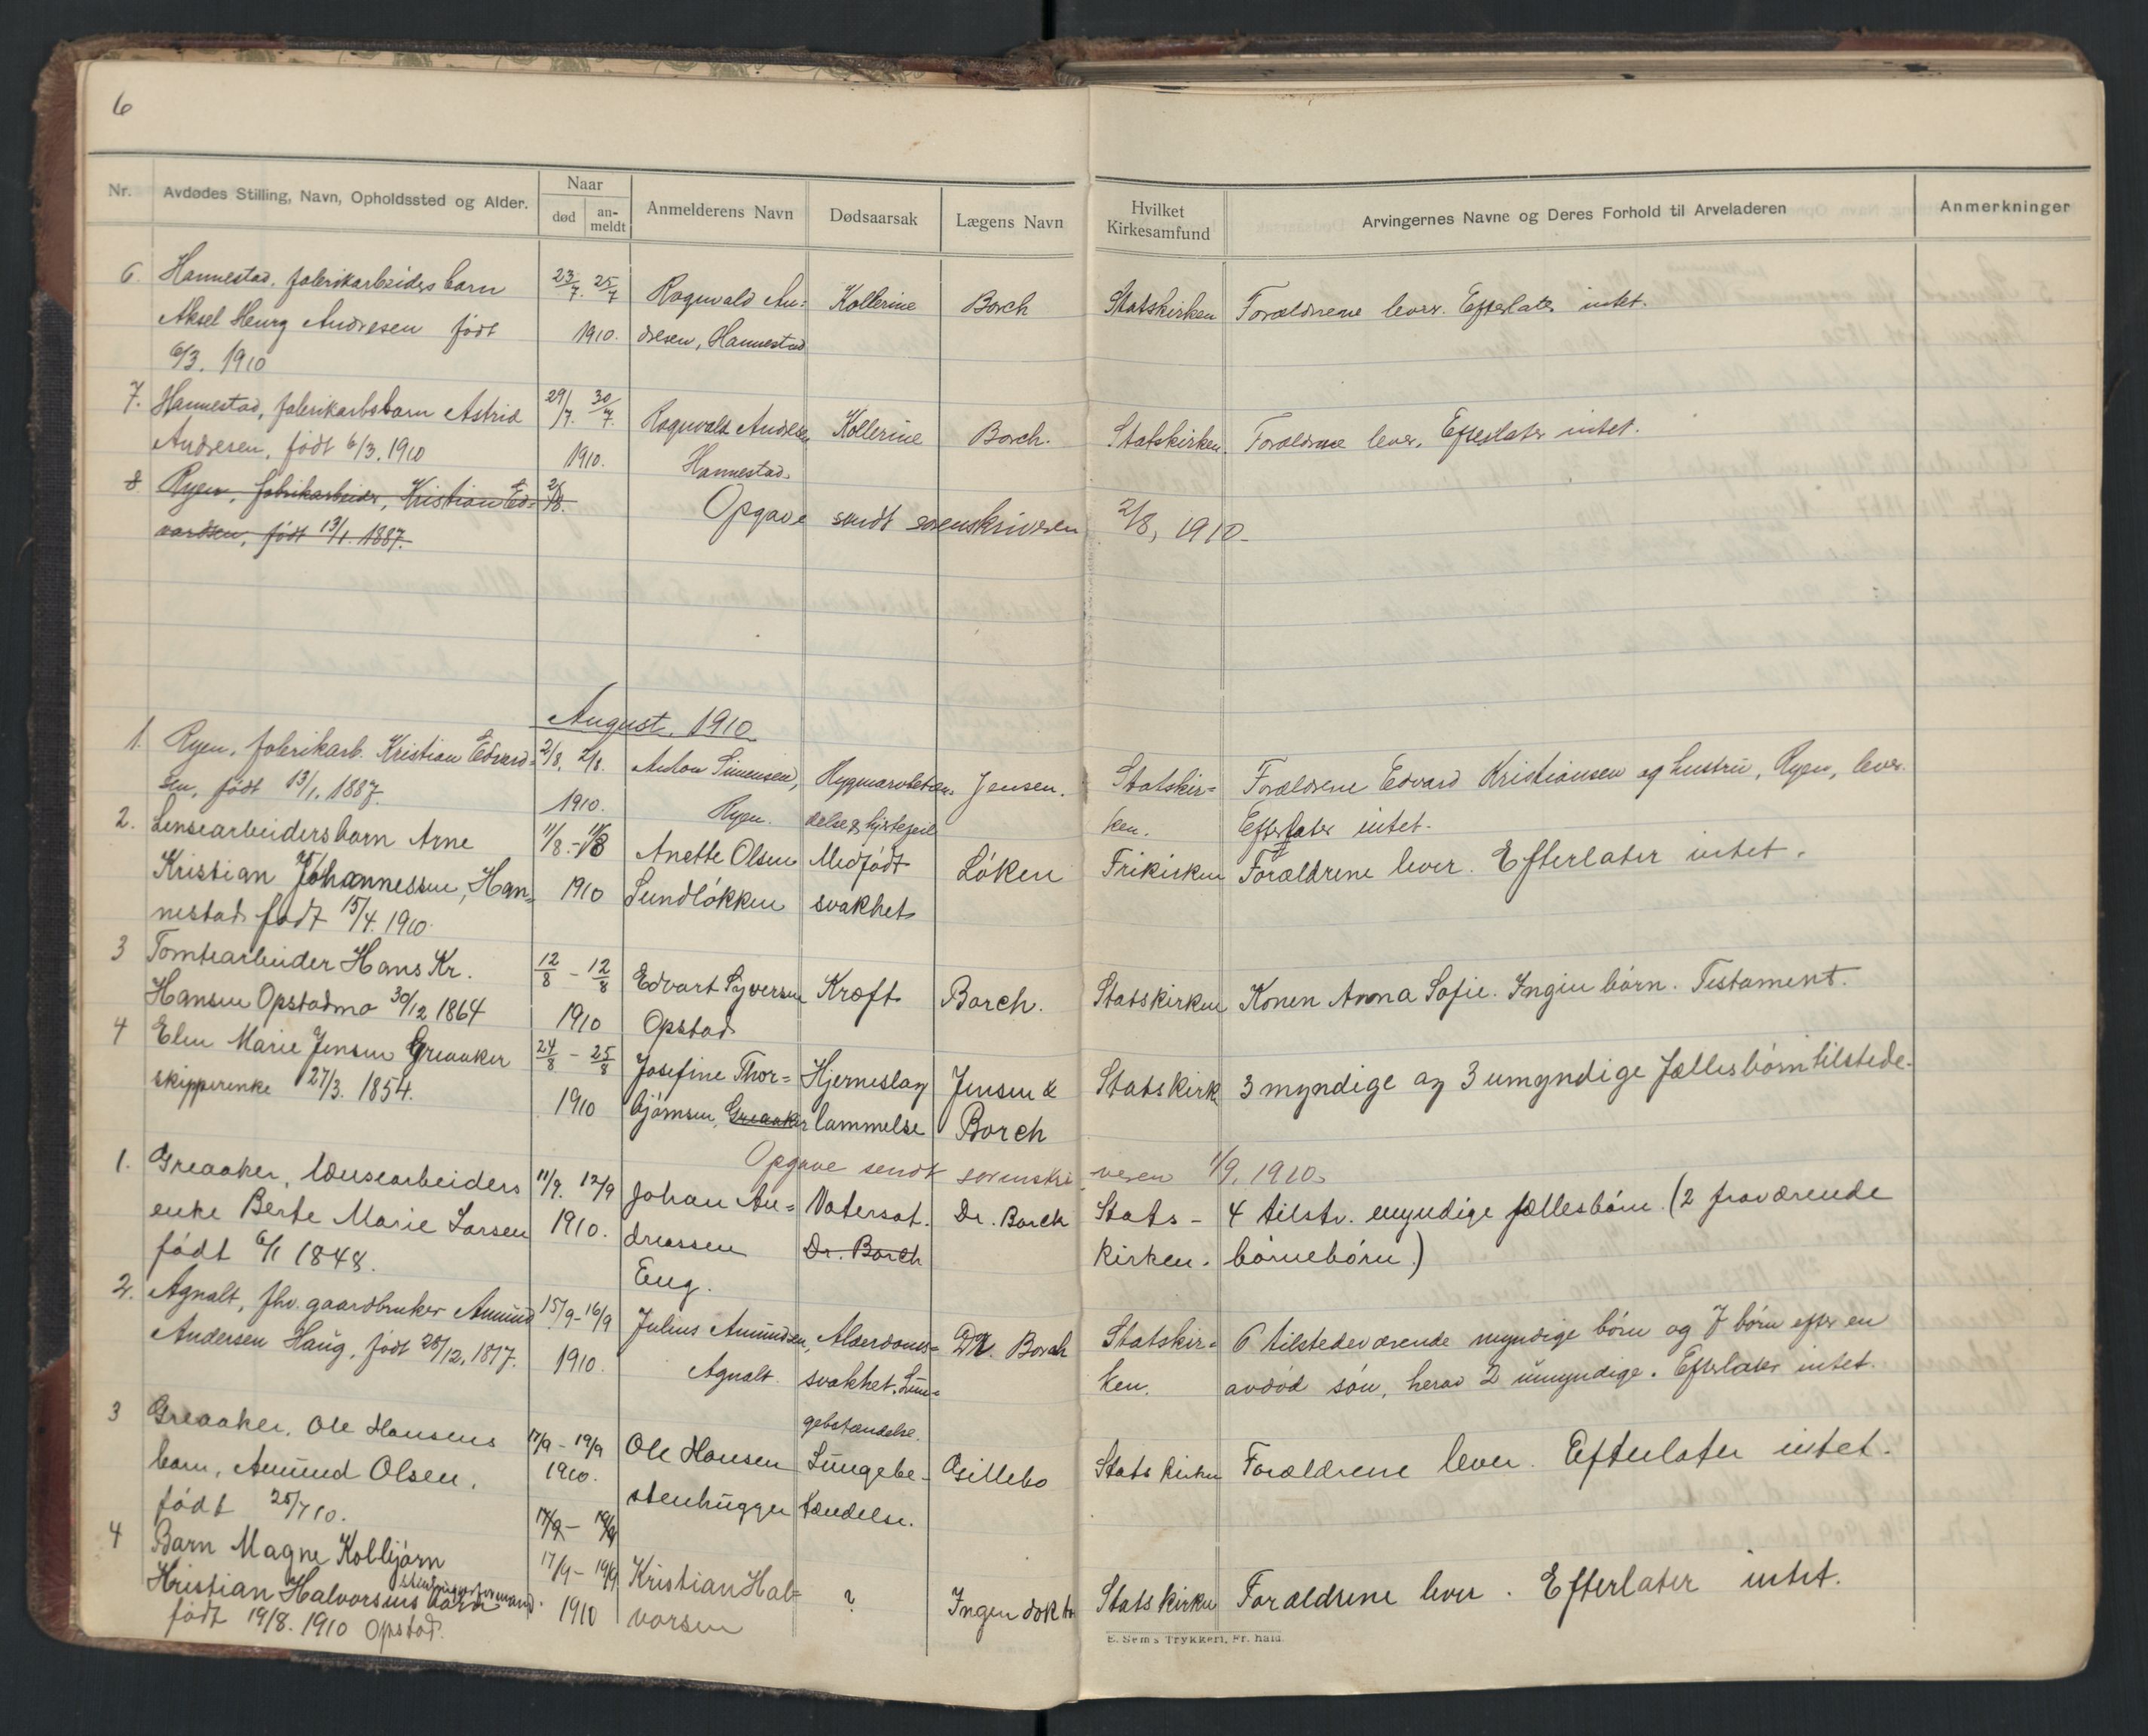 6
Nr. Avdødes Stilling, Navn, Opholdssted og Alder. Naar død an-meldt Anmelderens Navn Dødsaarsak Lægens Navn Hvilket Kirkesamfund Arvingernes Navne og Deres Forhold til Arveladeren Anmerkninger
6. Hannestad, fabrikarbeiders barn 23/7. 25/7 Ragnvald An= Kollerine Borch Statskirken Forældrene lever. Efterlater intet.
Aksel Henry Andresen født 1910. dresen, Hannestad
6/3. 1910
7. Hannestad, fabrikarbsbarn Astrid 29/7. 30/7. Ragnvald Andresen Kollerine Borch. Statskirken. Forældrene lever. Efterlater intet.
Andresen, født 6/3. 1910 1910. Hannestad.
8 Ryen, fabrikarbeider, Kristian Ed= 2/8.
vardsen, født 13/1. 1887.
Opgave sendt sorenskriveren 2/8, 1910.
August. 1910
1. Ryen, fabrikarb. Kristian Edvard= 2/8. 2/8. Anton Simensen, Jensen. Statskir= Forældrene Edvard Kristiansen og hustru, Ryen, lever.
sen, født 13/1. 1887. 1910. Ryen. ken. Efterlater intet.
2. Lensearbeidersbarn Arne 11/8.-11/8 Anette Olsen Medfødt Løken Frikirken Forældrene lever. Efterlater intet.
Kristian Johannessen, Han= 1910 Sundløkken svakhet
nestad født 15/4. 1910.
3 Tomtearbeider Hans Kr. 12/8 - 12/8 Edvart Syversen Kræft Borch. Statskirken Konen Anna Sofie. Ingen børn. Testament.
Hansen Opstadmo 30/12 1864 1910 Opstad
4 Elen Marie Jensen Greaaker 24/8 - 25/8 Josefine Thor= Hjerneslag Jensen & Statskirk 3 myndige og 3 umyndige fællesbørn tilstede.
skipperenke 27/3. 1854. 1910 bjørnsen, Greaaker lammelse Borch
Opgave sendt sorenskri veren 1/9. 1910.
1. Greaaker, lænsearbeiders 11/9. 12/9 Johan An= Vatersot. Dr. Borch Stats- 4 tilstv. myndige fællesbørn. (2 fraværende
enke Berte Marie Larsen 1910. dreassen Dr. Borch kirken. børnebørn.)
født 6/1 1848. Eng.
2. Agnalt, fhv. gaardbruker Amund 15/9-16/9 Julius Amundsen, Alderdoms= Dr. Borch Statskir= 6 tilstedeværende myndige børn og 7 børn efter en
Andersen Haug, født 28/12, 1817. 1910. Agnalt. svakhet. Lun= ken. avdød søn, herav 2 umyndige. Efterlater intet.
gebetændelse.
3 Greaaker, Ole Hansens 17/9 - 19/9 Ole Hansen Lungebe- Gillebo Statskirken Forældrene lever. Efterlater intet.
barn, Amund Olsen, 1910. stenhugger tændelse.
født 25/7 10. 17/9 - 19/9
4 Barn Magne Kolbjørn 17/9 - 19/9 Kristian Hal= ? Ingen doktor Statskirken Forældrene lever. Efterlater intet.
Kristian Halvorsens barn 1910 vorsen
født 19/8. 1910 Opstad.
E. Sem's Trykkeri, Fr.hald.